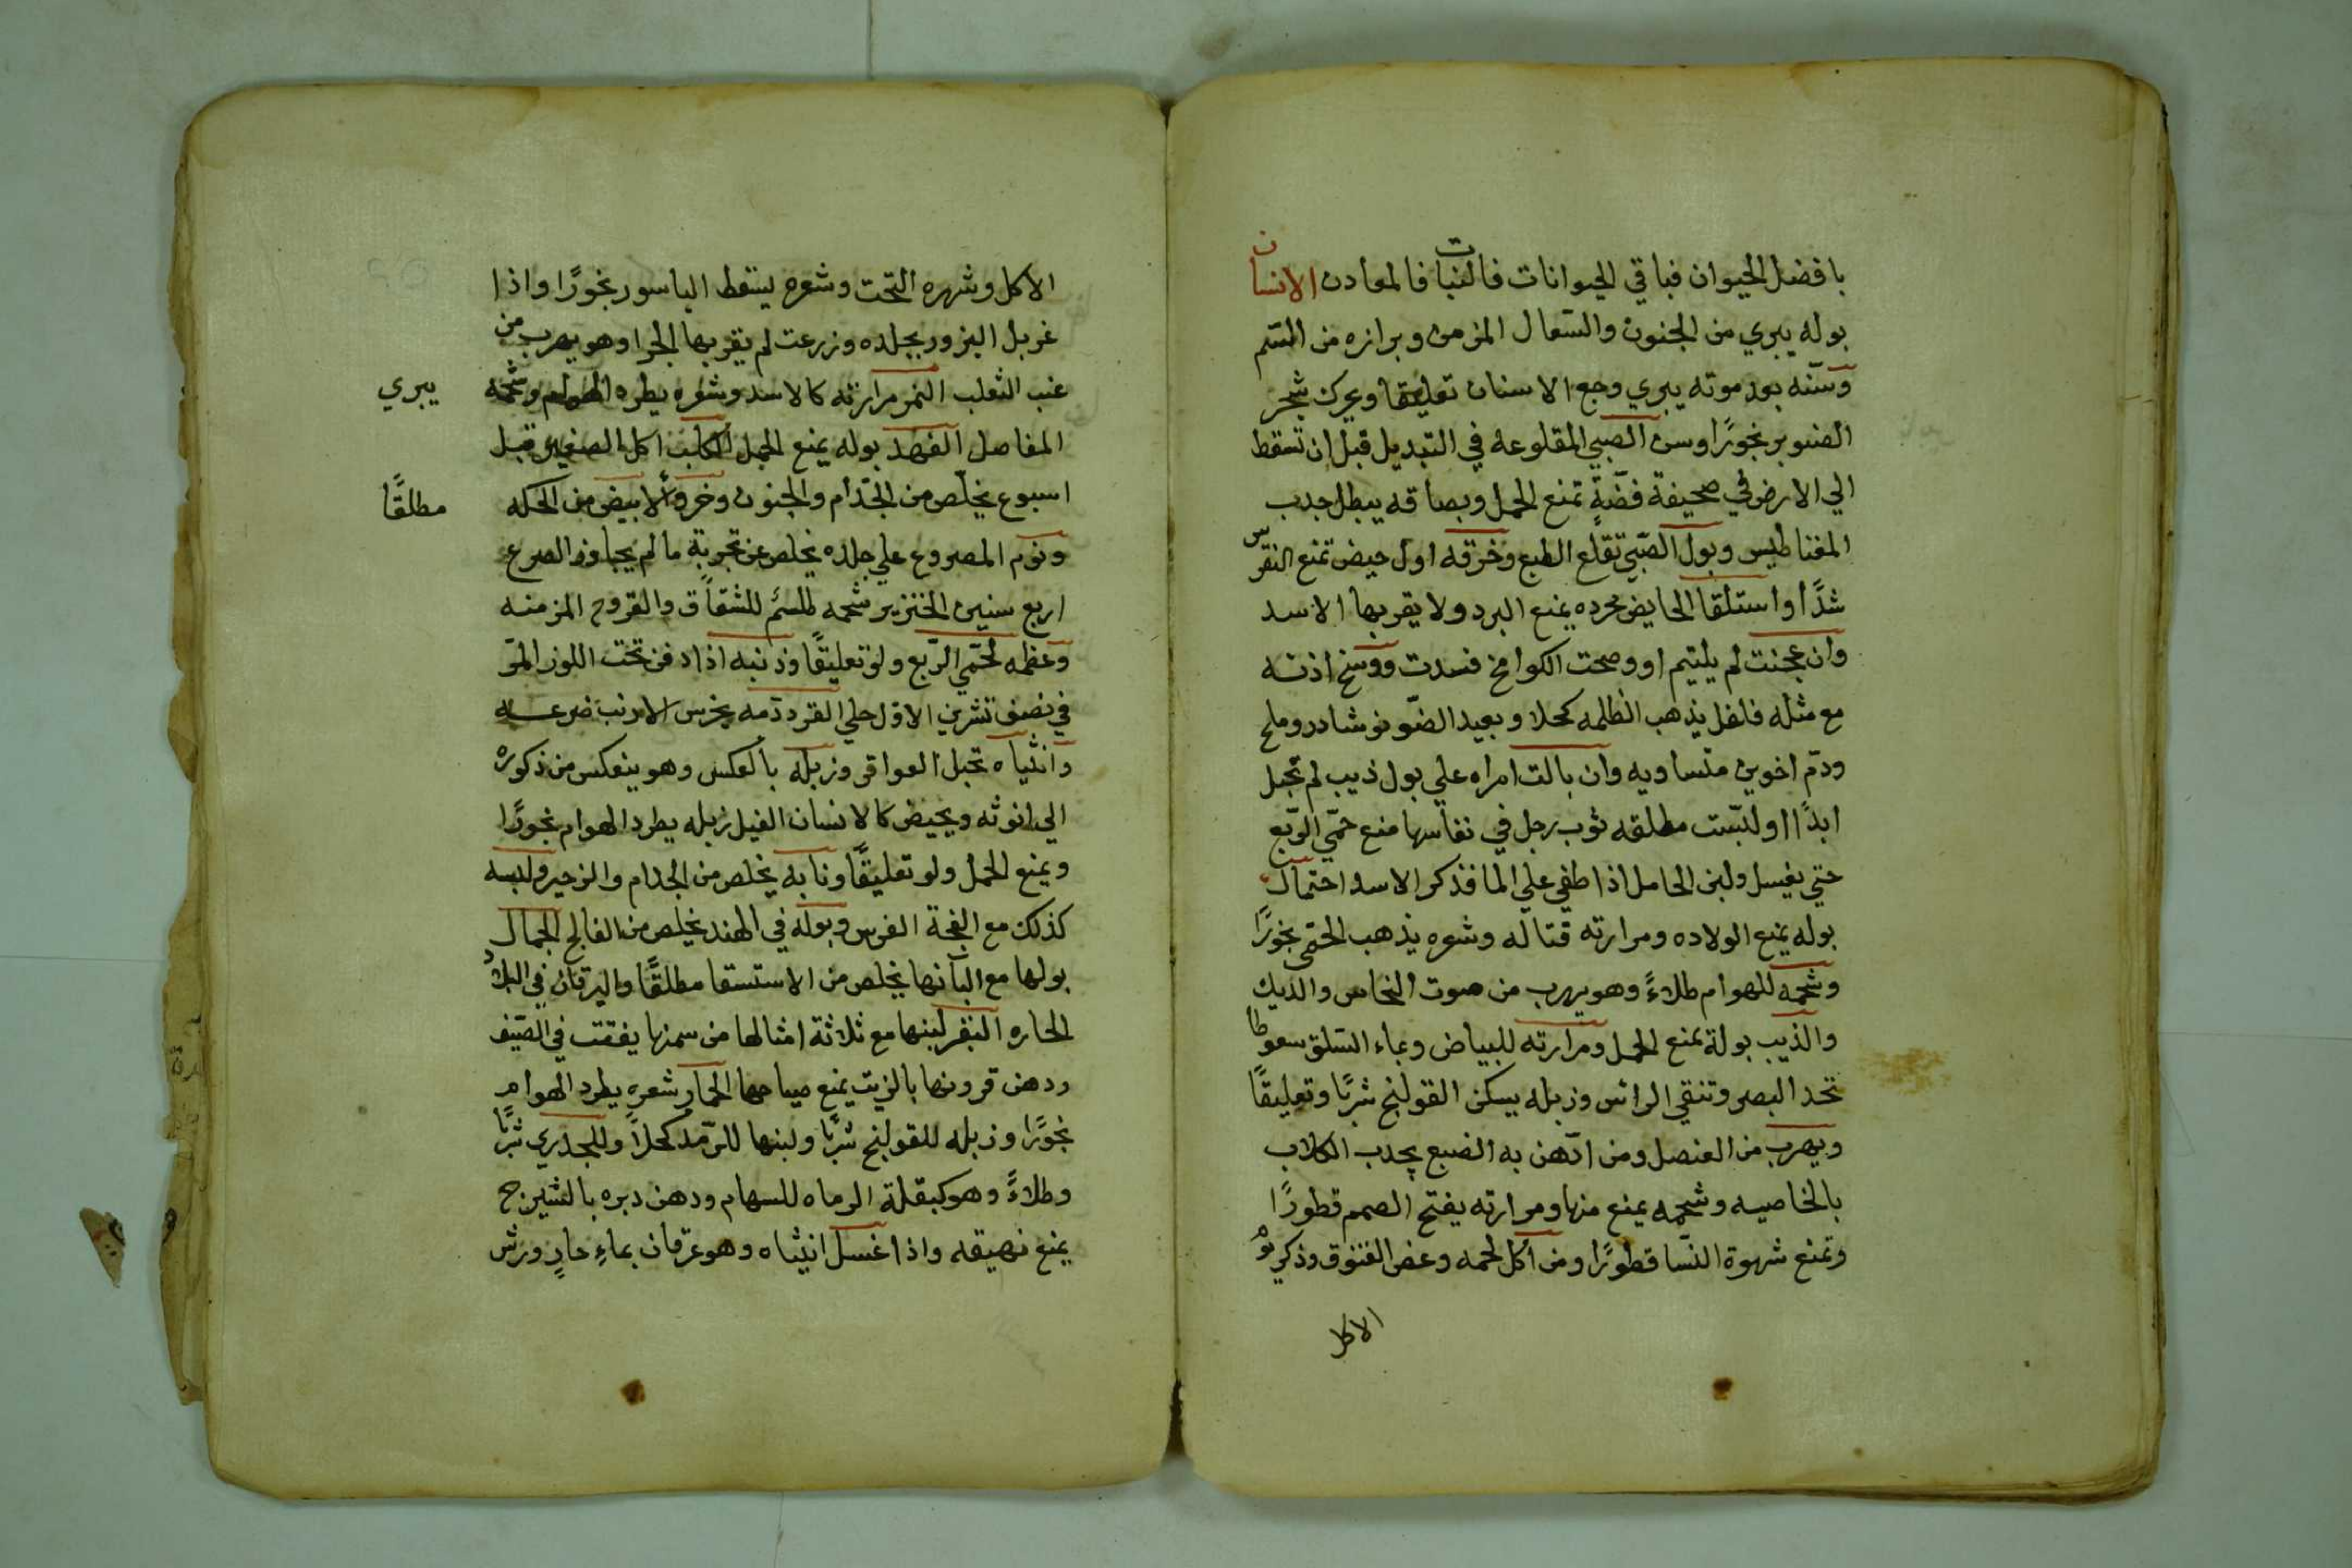 بافضل الحيوان فباقي الحيوانات فالنبات فالمعادن الانسان
بوله يبري من الجنون والسعال المزمن وبرازه من السم
وسنه بعد موته يبري وجع الاسنان تعليقا ويحرك شجر
الصنوبر بخورًا وسن الصبي المقلوعه في التبديل قبل ان تسقط
الي الارض في صحيفة فضةٍ تمنع الحمل وبصاقه يبطل جدب
المغناطيس وبول الصبي تقلع الطبع وخرقه اول حيض تمنع النقرس
شدًّا واستلقا الحايض مجرده يمنع البرد ولا يقربها الاسد
وان عجنت لم يلتيم او وضحت الكوامخ فسدت ووسخ اذنه
مع مثله فلفل يذهب الظلمه كحلا وبعيد الضو نوشادر وملح
ودم اخوين متساويه وان بالت امراه علي بول ذيب لم تحبل
ابدًا او لبست مطلقه ثوب رجل في نفاسها منع حمّي الرّبع
حتي يغسل ولبن الحامل اذا طفي علي الما فذكر الاسد احتمال
بوله يمنع الولاده ومرارته قتاله وشعره يذهب الحمّي بخورًا
وشحمه للهوام طلاءً وهو يهرب من صوت النحاس والديك
والذيب بولة يمنع الحمل ومرارته للبياض وبماء السلق سعوطا
تحد البصر وتنقي الراس وزبله يسكن القولنج شربًا وتعليقًا
ويهرب من العنصل ومن ادّهن به الضبع يجدب الكلاب
بالخاصيه وشحمه يمنع منها ومرارته يفتح الصمم قطورًا
وتمنع شهوة النسا قطورًا ومن اكل لحمه وعض المفتوق وذكي
الاكل
الاكل وشهره التحت وشعره يسقط الباسور بخورًا واذا
غربل البزور بجلده وزرعت لم يقربها الجراد وهو يهرب من
عنب الثعلب النمر مرارته كالاسد وشعره يطرد الهوام وشحمه
يبري
المفاصل الفهد بوله يمنع الحمل الكلب اكل الصغير قبل
اسبوع يخلّص من الجذام والجنون وخروا الابيض من الحكه
مطلقًا
ونوم المصروع علي جلده يخلص عن تجربة ما لم يجاوز الصرع
اربع سنين الخنزير شحمه طلسم للشقاق والقروح المزمنه
وعظمه لحمّي الرّبع ولو تعليقًا وذنبه اذا دفن تحت اللوز المرّ
في نصف تشرين الاول حلي القرد دمه يخرس الارنب ضرعه
وانثياه تحبل العواقر وزبله بالعكس وهو ينعكس من ذكوره
الي انوثه ويحيض كالانسان الفيل زبله يطرد الهوام بخورًا
ويمنع الحمل ولو تعليقًا ونابه يخلص من الجدام والزحير ولبسه
كذلك مع انفحة الفرس وبوله في الهند يخلص من الفالج الجمال
بولها مع البانها يخلص من الاستسقا مطلقًا واليرقان في البلاد
الحاره البقر لبنها مع ثلاثة امثالها من سمنها يفقت في الصيف
ودهن قرونها بالزيت يمنع صياحها الحمار شعره يطرد الهوام
بخورًا وزبله للقولنج شربًا ولبنها للرّمد كحلاً وللجدري شربًا
وطلاءً وهو كبقلة الرماه للسهام ودهن دبره بالشيرج
يمنع نهيقه واذا غسل انثياه وهو عرقان بماءٍ حارٍ ورش